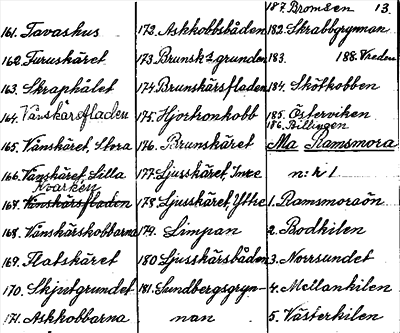 161. Tavashus
162. Furuskäret
163. Skraphålet
164. Vånskärsfladen
165. Vånskäret, Stora
166. Vånskäret, Lilla
Kvarken
167. Vånskärsfladen
168. Vånskärskobbarna
169. Flatskäret
170. Skjutgrundet
171. Askkobbarna
172. Askkobbsbåden
173. Brunsk:s grunden
174. Brunskärsfladen
175. Hjortronkobb
176. Brunskäret
177. Ljusskäret, Inre
178. Ljusskäret, Yttre
179. Limpan
180. Ljusskärsbåden
181. Sundbergsgryn-
nan
187. Bromsen 13.
182. Skrabbgrynnan
183. 188. Vreden
184. Skötkobben
185. Österviken
186. Billingen
Ma Ramsmora
n:r 1
1. Ramsmoraön
2. Bodkilen
3. Norrsundet
4. Mellankilen
5. Västerkilen